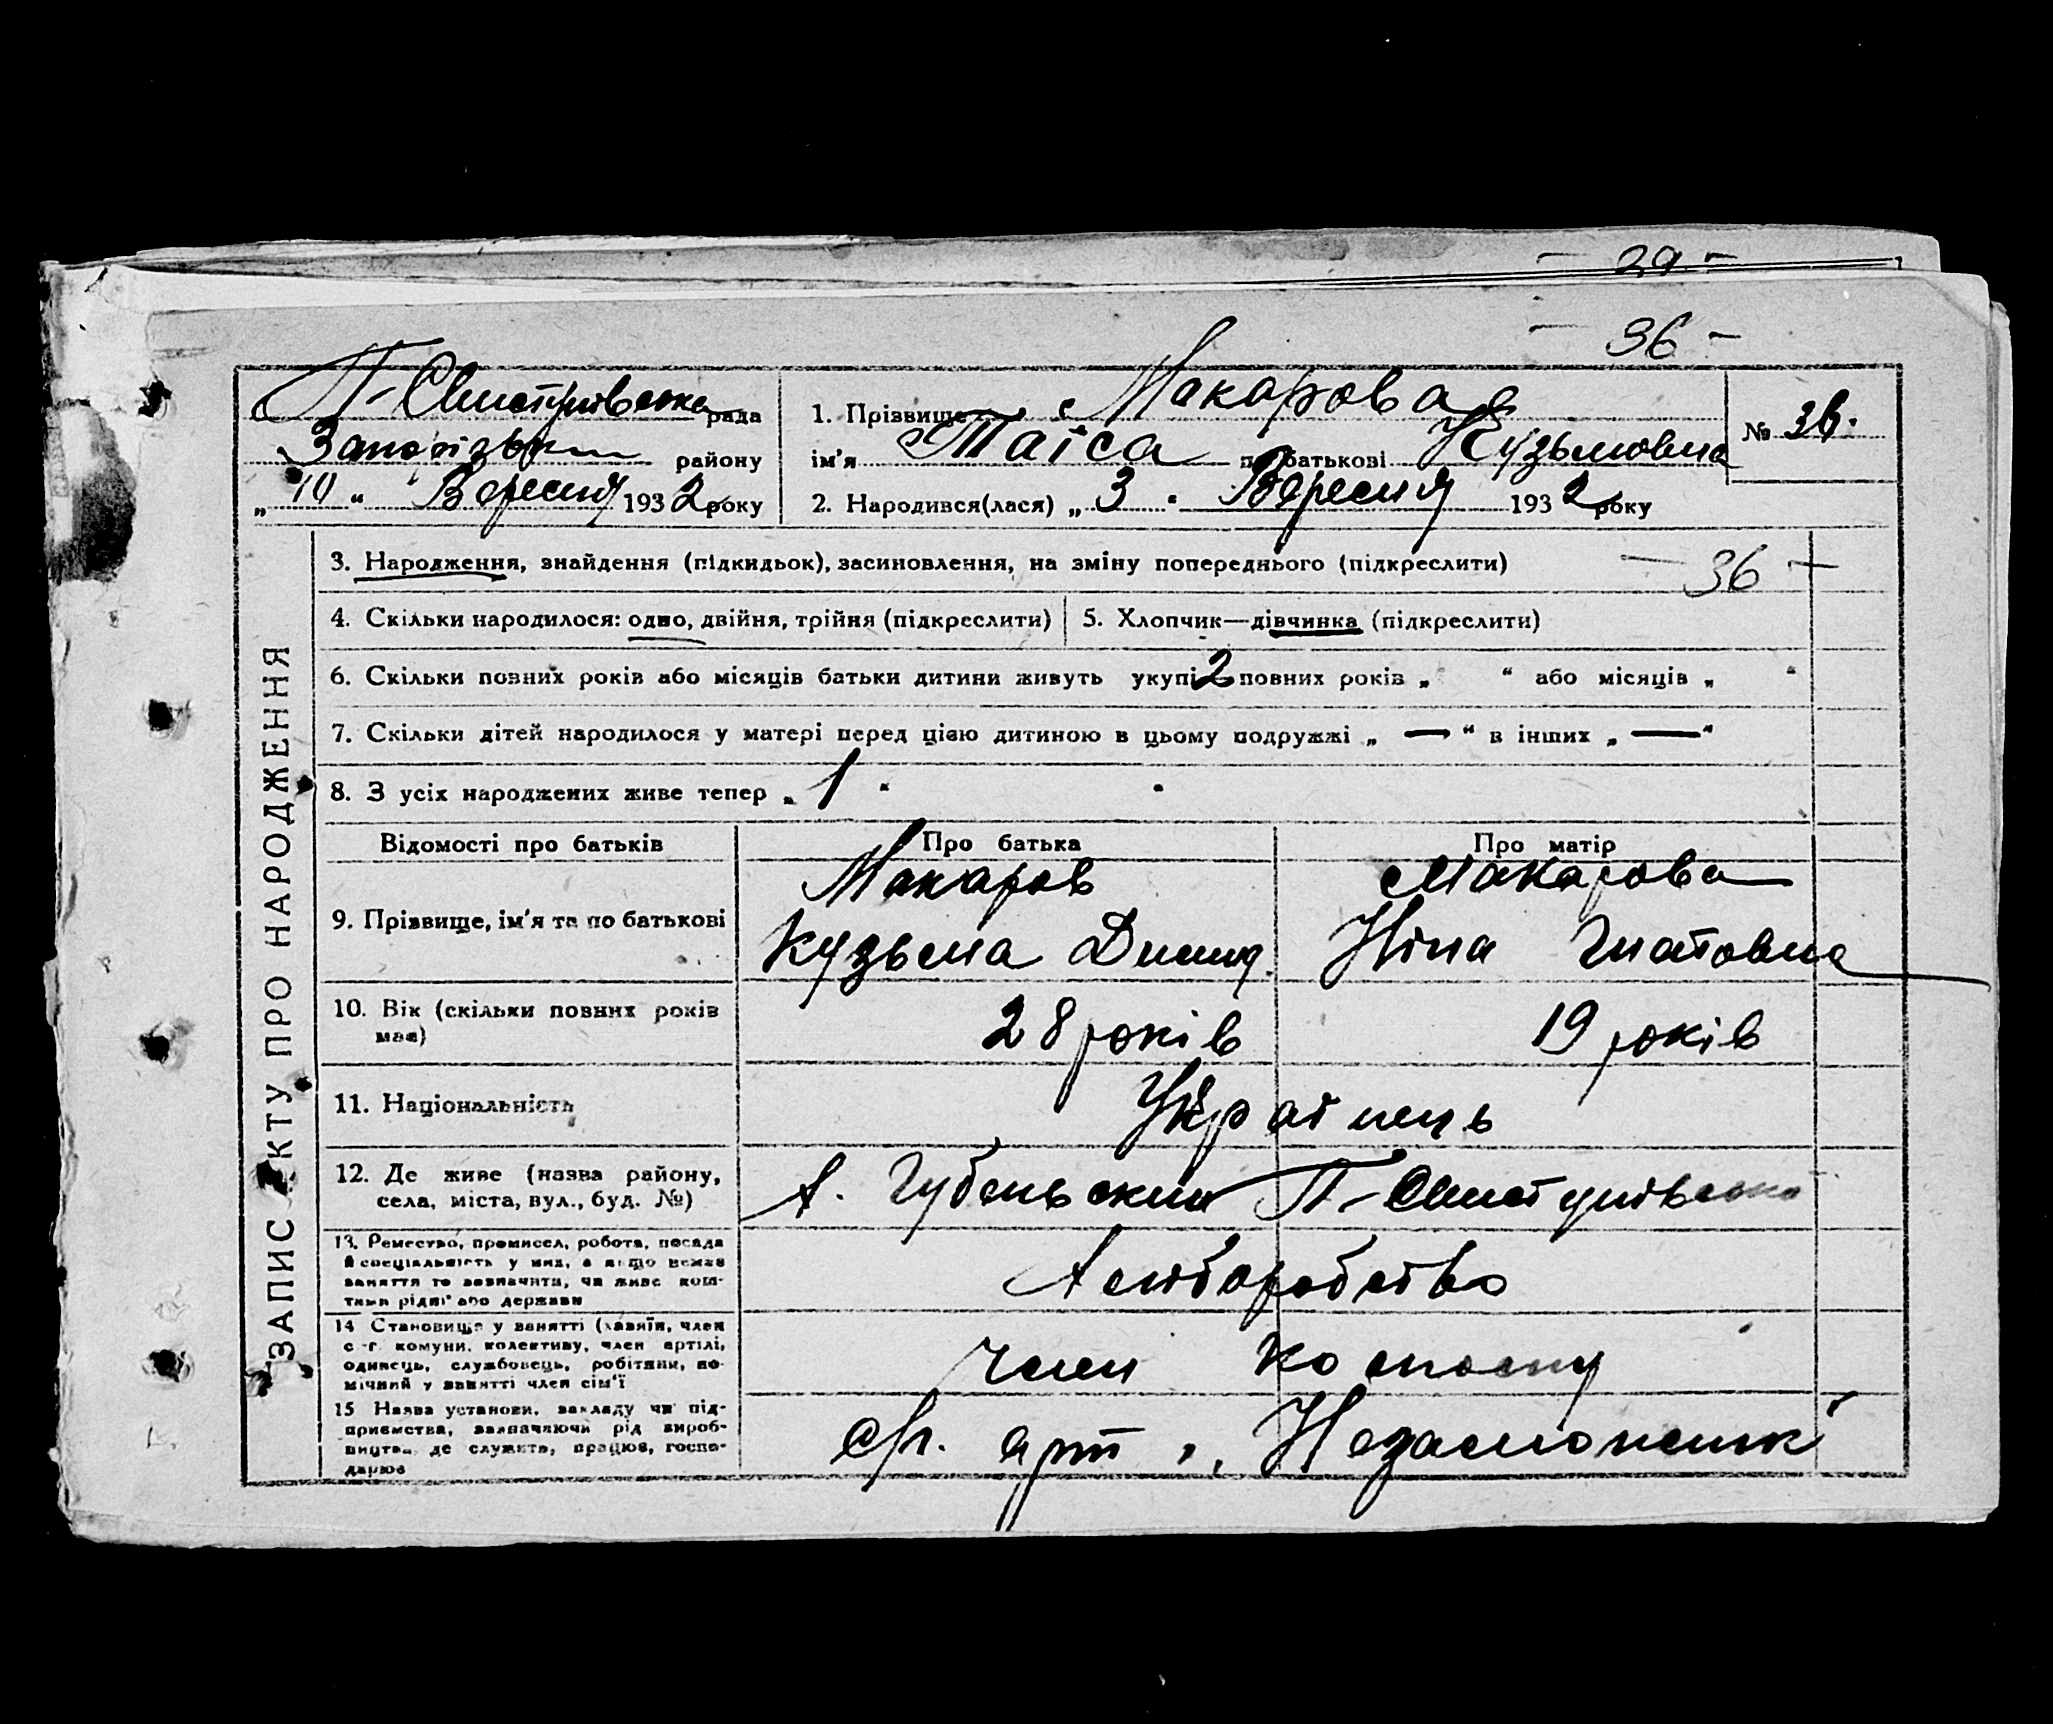 - 29 -
- 36 -
П-Свистунівська рада
Запорізьки району
„ 10 “ Вересня 1932 року
1. Прізвище Макарова
ім'я Таіса по батькові Кузьмовна
2. Народився(лася) „ 3 “ Вересня 1932 року
№ 36.
ЗАПИС АКТУ ПРО НАРОДЖЕННЯ
3. Народження, знайдення (підкидьок), засиновлення, на зміну попереднього (підкреслити)
- 36 -
4. Скільки народилося: одно, двійня, трійня (підкреслити)
5. Хлопчик—дівчинка (підкреслити)
6. Скільки повних років або місяців батьки дитини живуть укупі 2 повних років „ “ або місяців „ “
7. Скільки дітей народилося у матері перед цією дитиною в цьому подружжі „ — “ в інших „ — “
8. З усіх народжених живе тепер „ 1 “
Відомості про батьків
Про батька
Про матір
9. Прізвище, ім'я та по батькові
Макаров
Кузьма
Макарова
Ніна Гнатовна
10. Вік (скільки повних років
має)
28 років
19 років
11. Національність
Українець
12. Де живе (назва району,
села, міста, вул., буд. №)
П-Свистунівська
13. Ремество, промисел, робота, посада
й спеціальність у них, а якщо немає
заняття то зазначити, чи живе кош-
тами рідні або держави
14 Становище у занятті (хазяїн, член
с-г. комуни, колективу, член артілі,
одинець, службовець, робітник, по-
мічний у занятті член сім'ї
член
15 Назва установи, закладу чи під-
приємства, зазначаючи рід вироб-
ництва, де служить, працює, госпо-
дарює
арт „Незаможник“